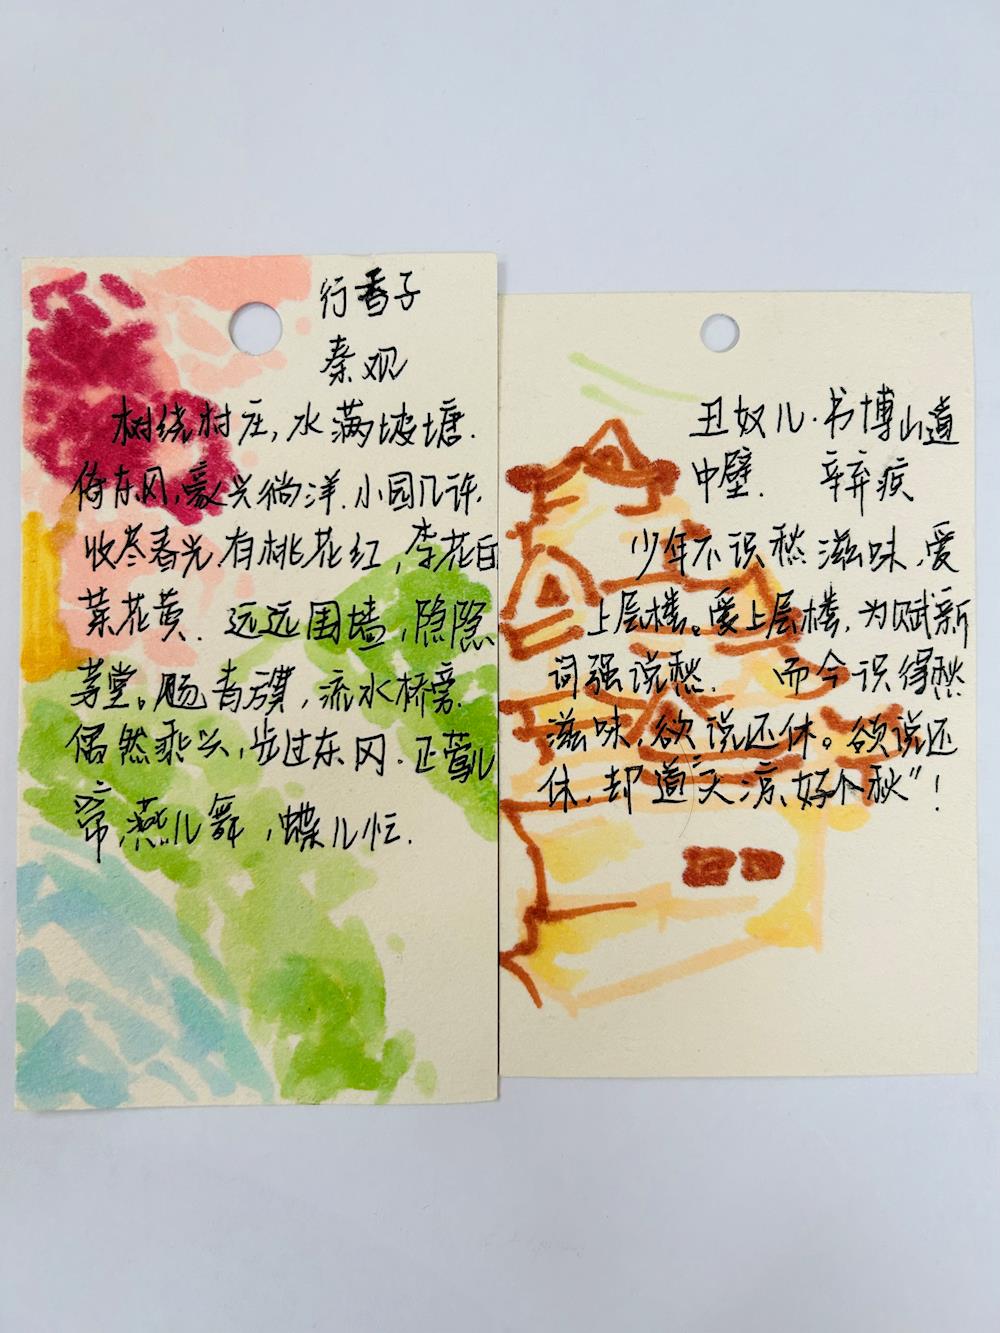 行香子
秦观
树绕村庄,水满坡塘.
倚东风,豪兴徜洋.小园几许,
收尽春光.有桃花红,李花白
菜花黄.远远围墙,隐隐
茅堂。飏青旗,流水桥旁.
偶然乘兴,步过东冈.正莺儿
啼,燕儿舞,蝶儿忙.
丑奴儿·书博山道
中壁. 辛弃疾
少年不识愁滋味,爱
上层楼。爱上层楼,为赋新
词强说愁. 而今识得愁
滋味,欲说还休。欲说还
休,却道"天凉好个秋"!